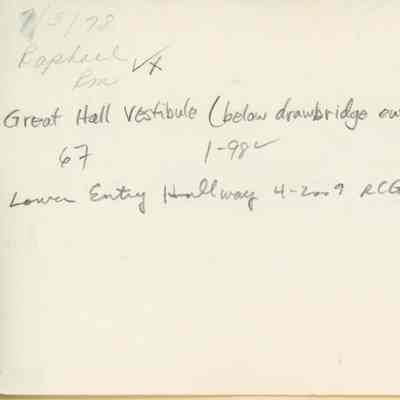 7/3/78
Raphael
Rm
Great Hall Vestibule (below drawbridge
67 1-98
Lower Entry Hallway 4-2009 RCG